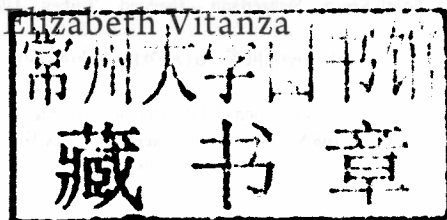 Elizabeth Vitanza
常州大学图书馆
藏书章